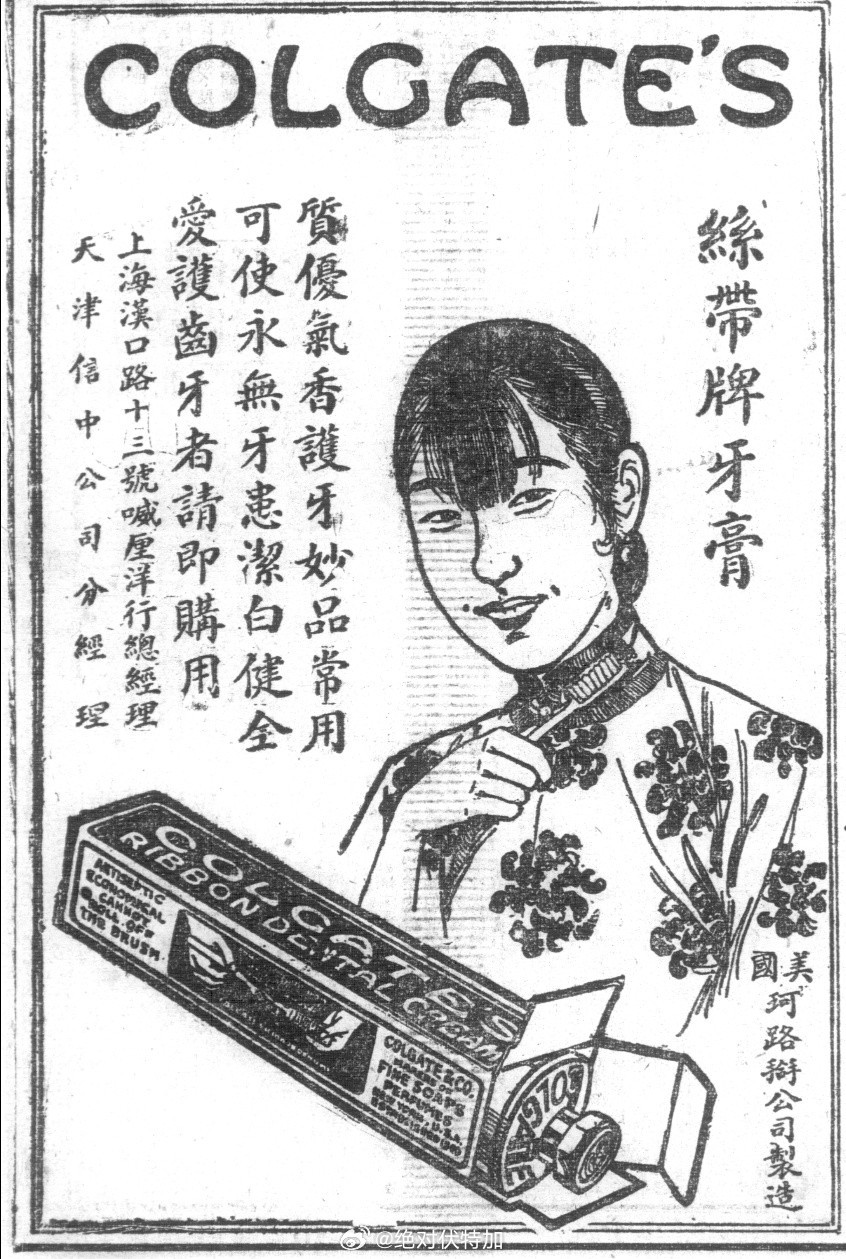 COLGATE'S
絲帶牌牙膏
質優氣香護牙妙品常用
可使永無牙患潔白健全
愛護齒牙者請即購用
上海漢口路十三號喴厘洋行總經理
天津信中公司分經理
COLGATE'S
RIBBON DENTAL CREAM
ANTISEPTIC
ECONOMICAL
CANNOT
ROLL OFF
THE BRUSH
COLGATE & CO.
MAKERS OF
FINE SOAPS
PERFUMES
NEW YORK U.S.A.
COLGATE
美國
珂路搿公司製造
@绝对伏特加